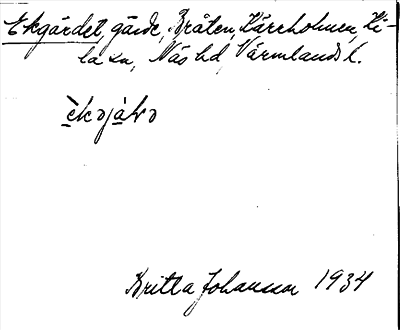 Ekgärdet, gärde, Bråten, Kärrholmen, Ki-
la sn, Näs hd, Värmlands l.
èkəjàɫə
Britta Johansson 1934